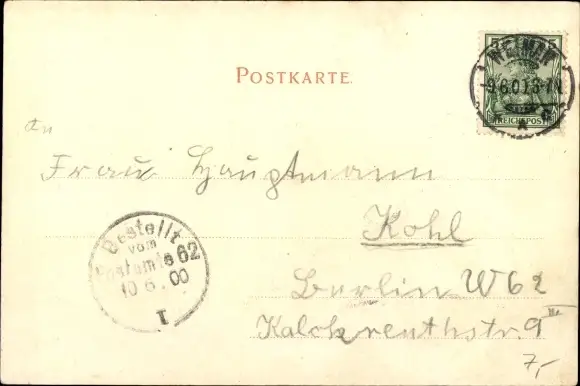 POSTKARTE.
5 5
WEIMAR
REICHSPOST
An
Frau Hauptmann
Kohl
Berlin W 62
Kalckreuthstr. 9 III
7,-
Bestellt
vom
Postamte 62
10 6. 00
1